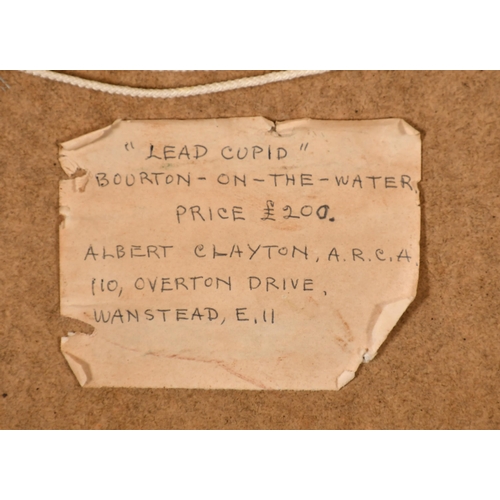 "LEAD CUPID"
BOURTON-ON-THE-WATER
PRICE £200.
ALBERT CLAYTON, A.R.C.A
110, OVERTON DRIVE,
WANSTEAD, E.11